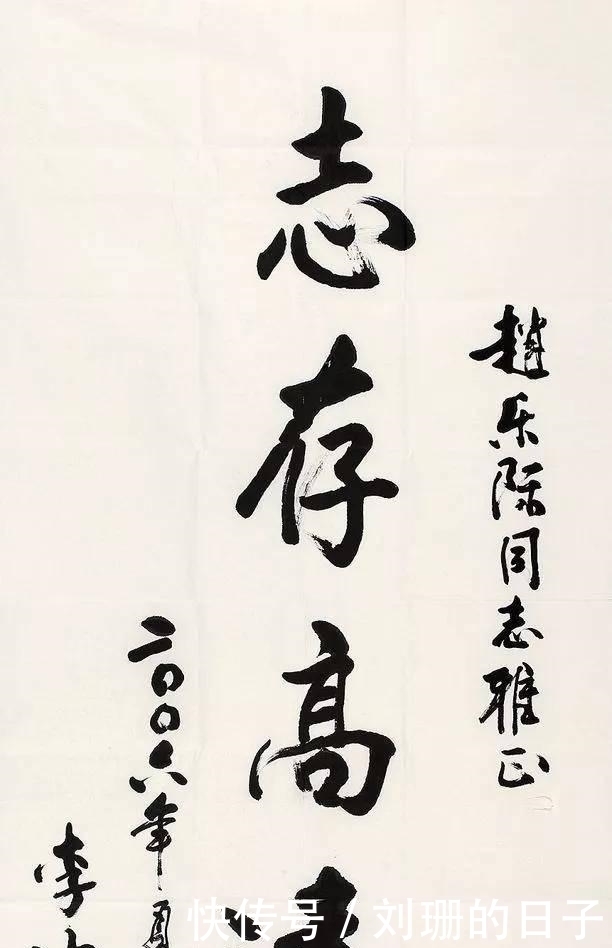 趙乐际同志雅正
志存高
二〇〇六年
李
快传号 / 刘珊的日子